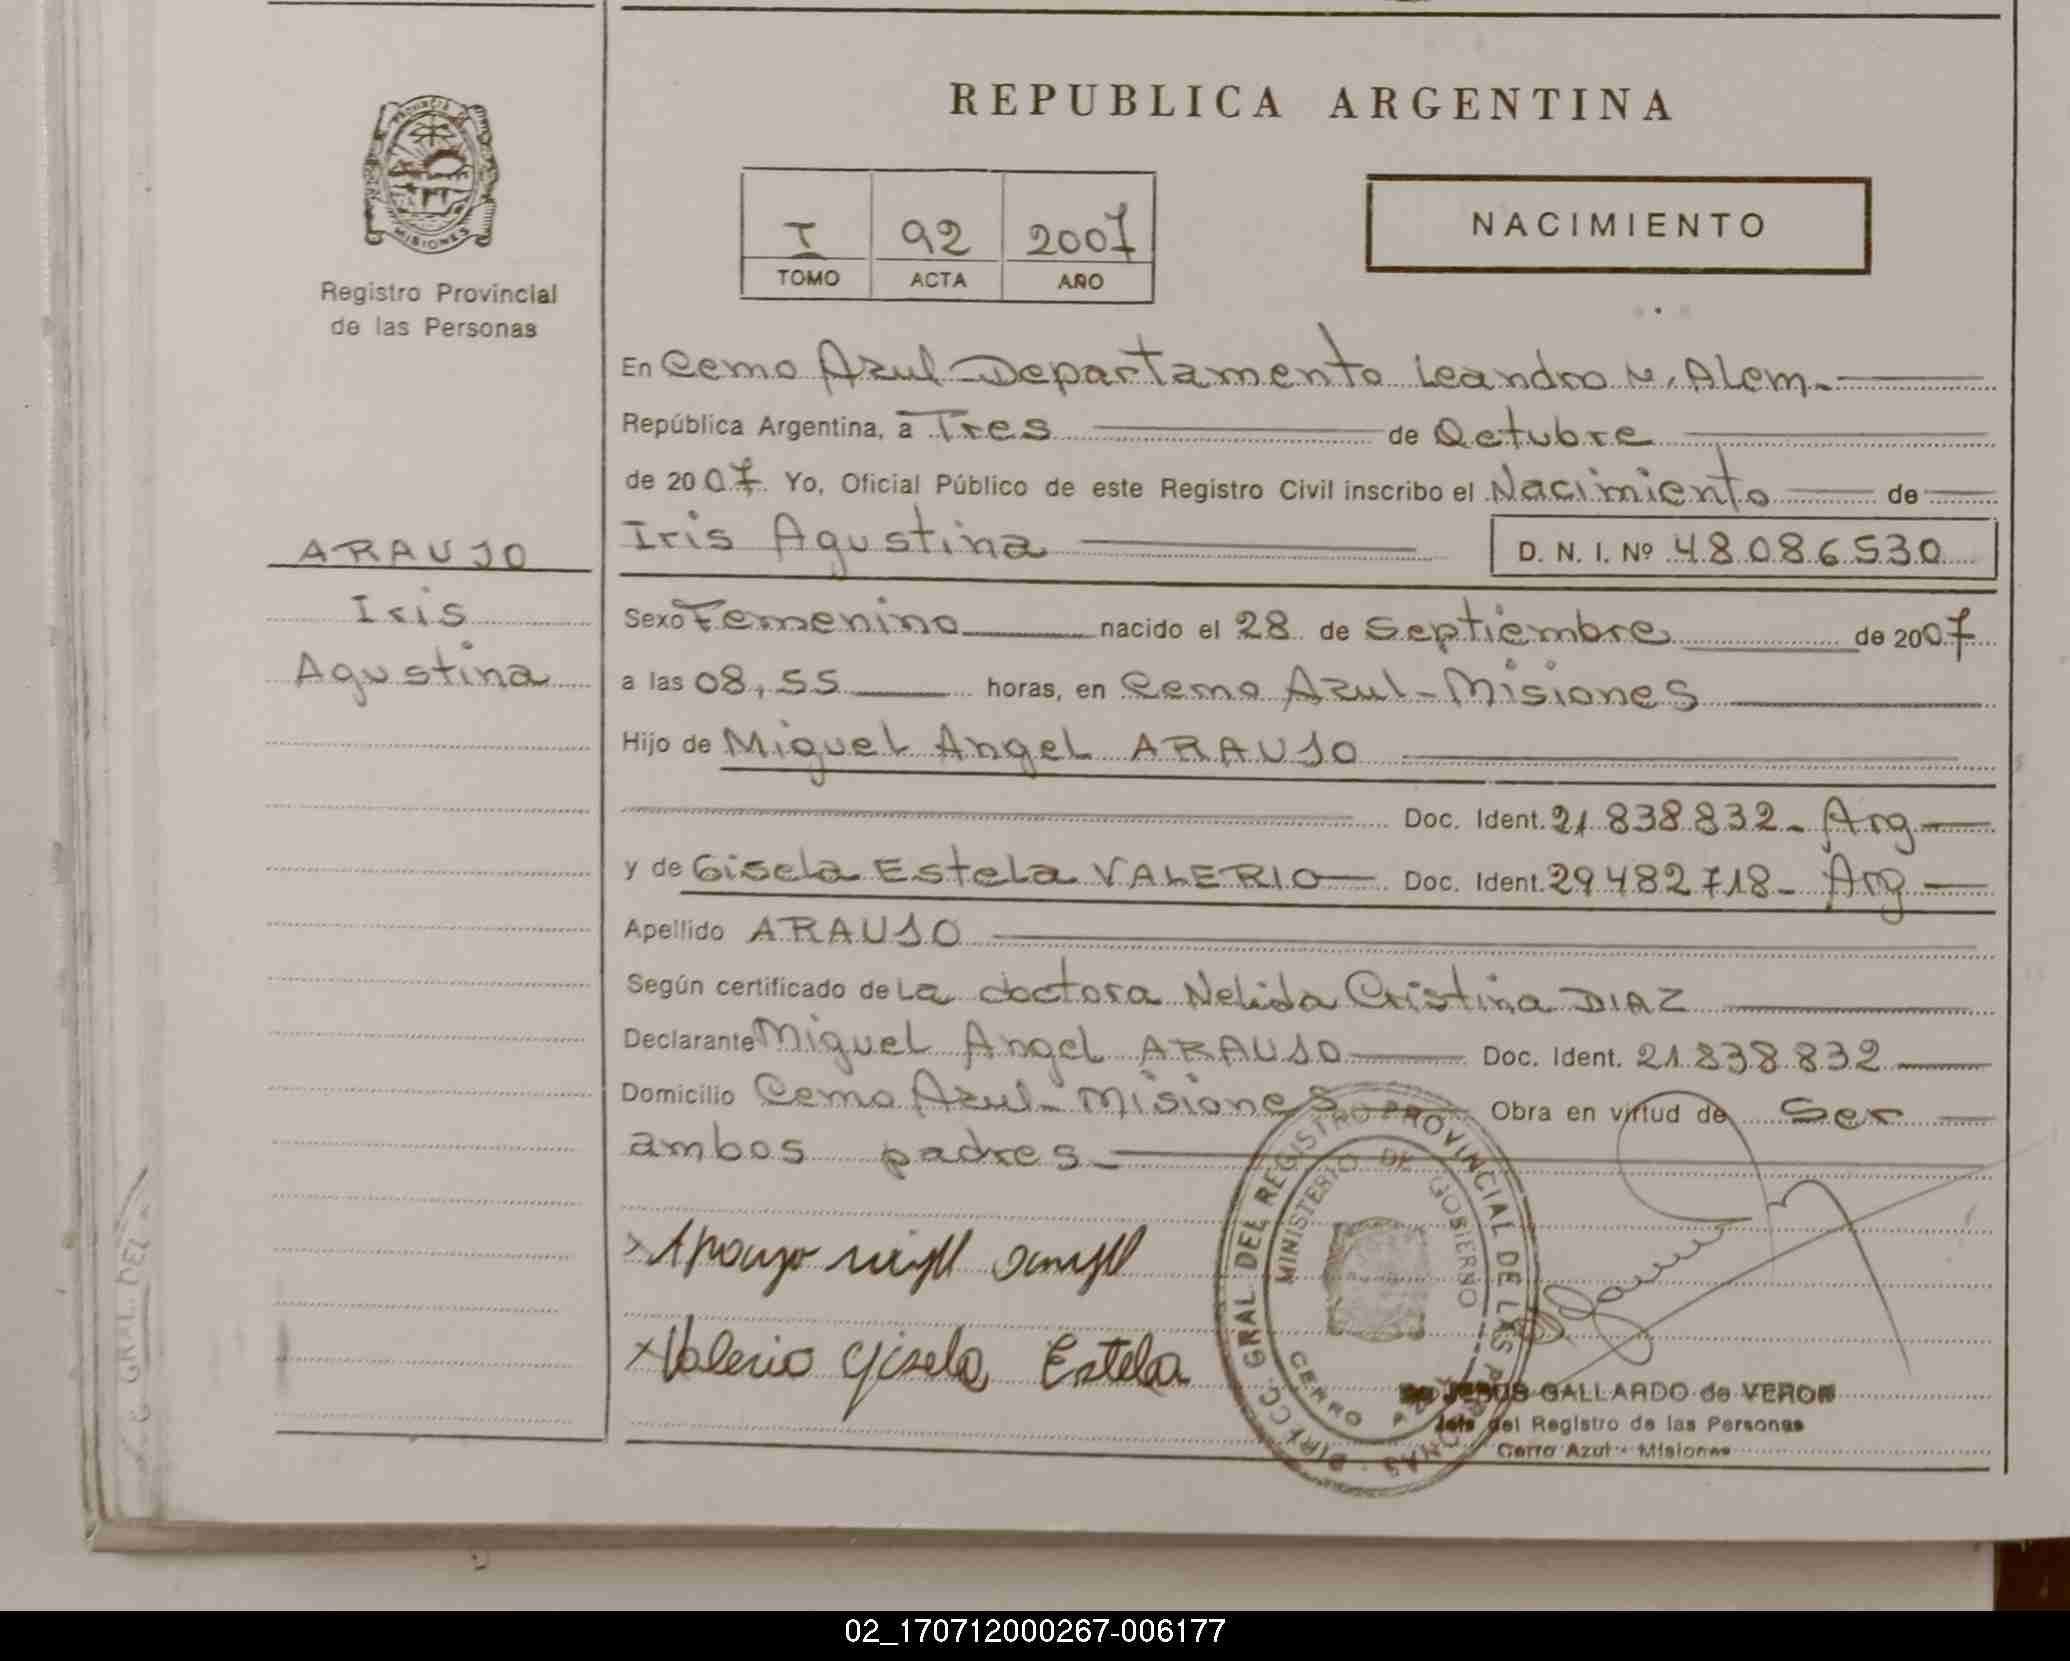 REPUBLICA ARGENTINA
PROVINCIA
MISIONES
Registro Provincial
de las Personas
I 92 2007
TOMO ACTA AÑO
NACIMIENTO
En Cerro Azul - Departamento Leandro N. Alem.
República Argentina, a Tres de Octubre
de 2007 Yo, Oficial Público de este Registro Civil inscribo el Nacimiento de
Iris Agustina D. N. I. Nº 48086530
ARAUJO
Iris
Agustina
Sexo Femenino nacido el 28 de Septiembre de 2007
a las 08,55 horas, en Cerro Azul - Misiones
Hijo de Miguel Angel ARAUJO
Doc. Ident. 21 838 832 - Arg
y de Gisela Estela VALERIO Doc. Ident. 29 482 718 - Arg
Apellido ARAUJO
Según certificado de La doctora Nelida Cristina DIAZ
Declarante Miguel Angel ARAUJO Doc. Ident. 21 838 832
Domicilio Cerro Azul - Misiones Obra en virtud de Ser
ambos padres
DIRECC. GRAL DEL REGISTRO PROVINCIAL DE LAS PERSONAS
MINISTERIO DE GOBIERNO
CERRO AZUL
Valerio Gisela Estela
JESUS GALLARDO de VERON
Jefe del Registro de las Personas
Cerro Azul - Misiones
02_170712000267-006177